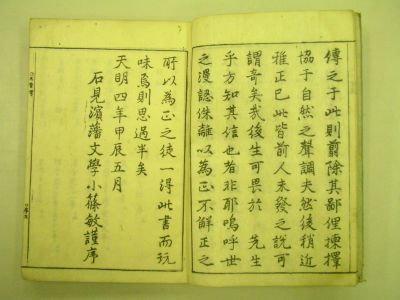 傳之于此則翦除其鄙俚揀擇
協于自然之聲調夫然後稍近
雅正已此皆前人未發之說可
謂奇矣哉後生可畏於　先生
乎方知其信也者非耶嗚呼世
之漫認侏離以為正不解正之
所以為正之徒一得此書而玩
味焉則思過半矣
天明四年甲辰五月
石見濱藩文學小篠敏謹序